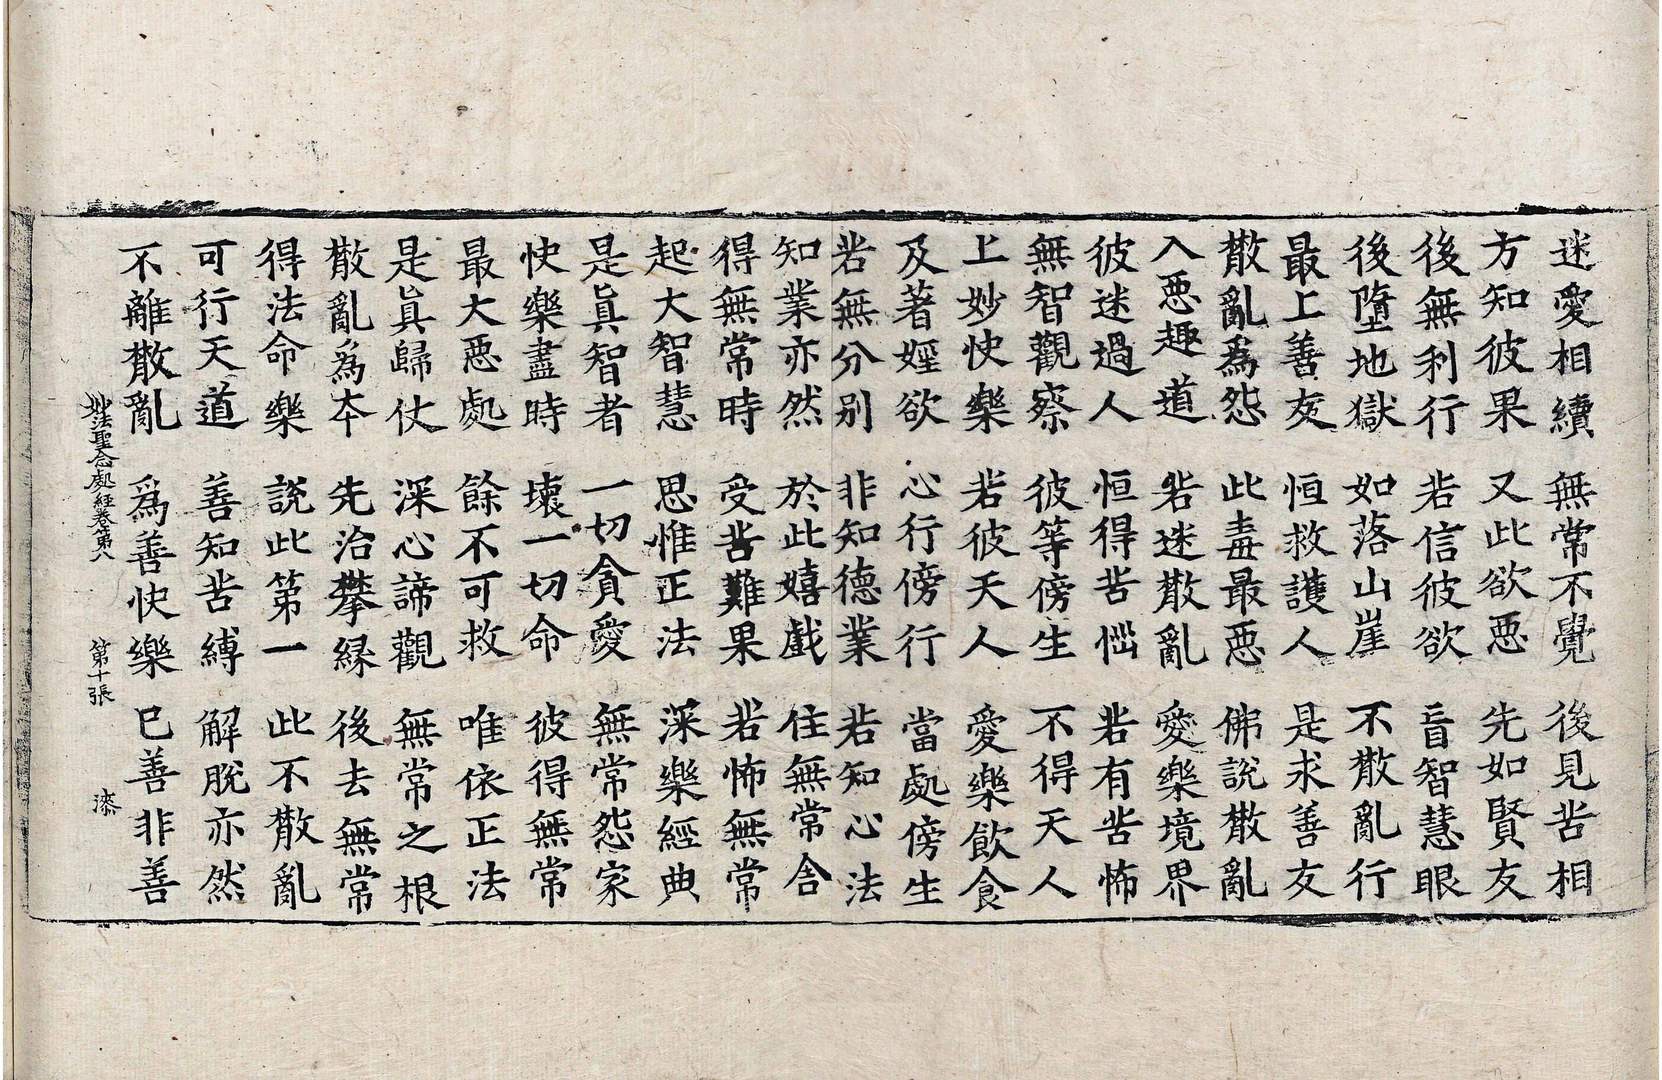 迷愛相續 無常不覺 後見苦相
方知彼果 又此欲惡 先如賢友
後無利行 若信彼欲 盲智慧眼
後墮地獄 如落山崖 不散亂行
最上善友 恒救護人 是求善友
散亂為怨 此毒最惡 佛說散亂
入惡趣道 若迷散亂 愛樂境界
彼迷過人 恒得苦惱 若有苦怖
無智觀察 彼等傍生 不得天人
上妙快樂 若彼天人 愛樂飲食
及著婬欲 心行傍行 當處傍生
若無分別 非知德業 若知心法
知業亦然 於此嬉戲 住無常舍
得無常時 受苦難果 若怖無常
起大智慧 思惟正法 深樂經典
是真智者 一切貪愛 無常怨家
快樂盡時 壞一切命 彼得無常
最大惡處 餘不可救 唯依正法
是真歸仗 深心諦觀 無常之根
散亂為本 先治攀緣 後去無常
得法命樂 說此第一 此不散亂
可行天道 善知苦縛 解脫亦然
不離散亂 為善快樂 已善非善
妙法聖念處經卷第八 第十張 漆